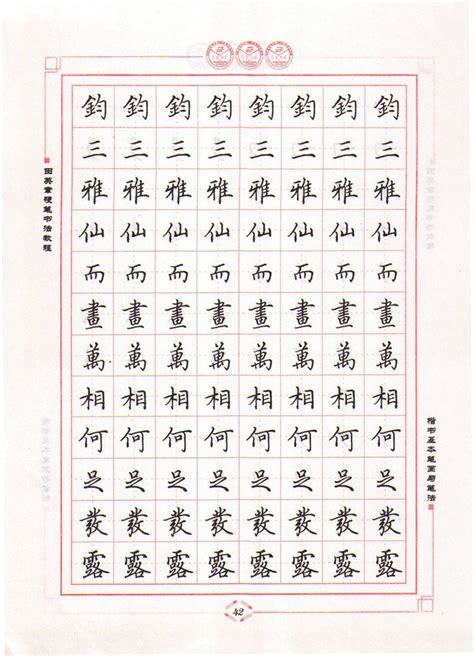 田英章硬笔书法教程
鈞 鈞 鈞 鈞 鈞 鈞 鈞 鈞
三 三 三 三 三 三 三 三
雅 雅 雅 雅 雅 雅 雅 雅
仙 仙 仙 仙 仙 仙 仙 仙
而 而 而 而 而 而 而 而
畫 畫 畫 畫 畫 畫 畫 畫
萬 萬 萬 萬 萬 萬 萬 萬
相 相 相 相 相 相 相 相
何 何 何 何 何 何 何 何
足 足 足 足 足 足 足 足
發 發 發 發 發 發 發 發
露 露 露 露 露 露 露 露
楷书基本笔画与笔法
42